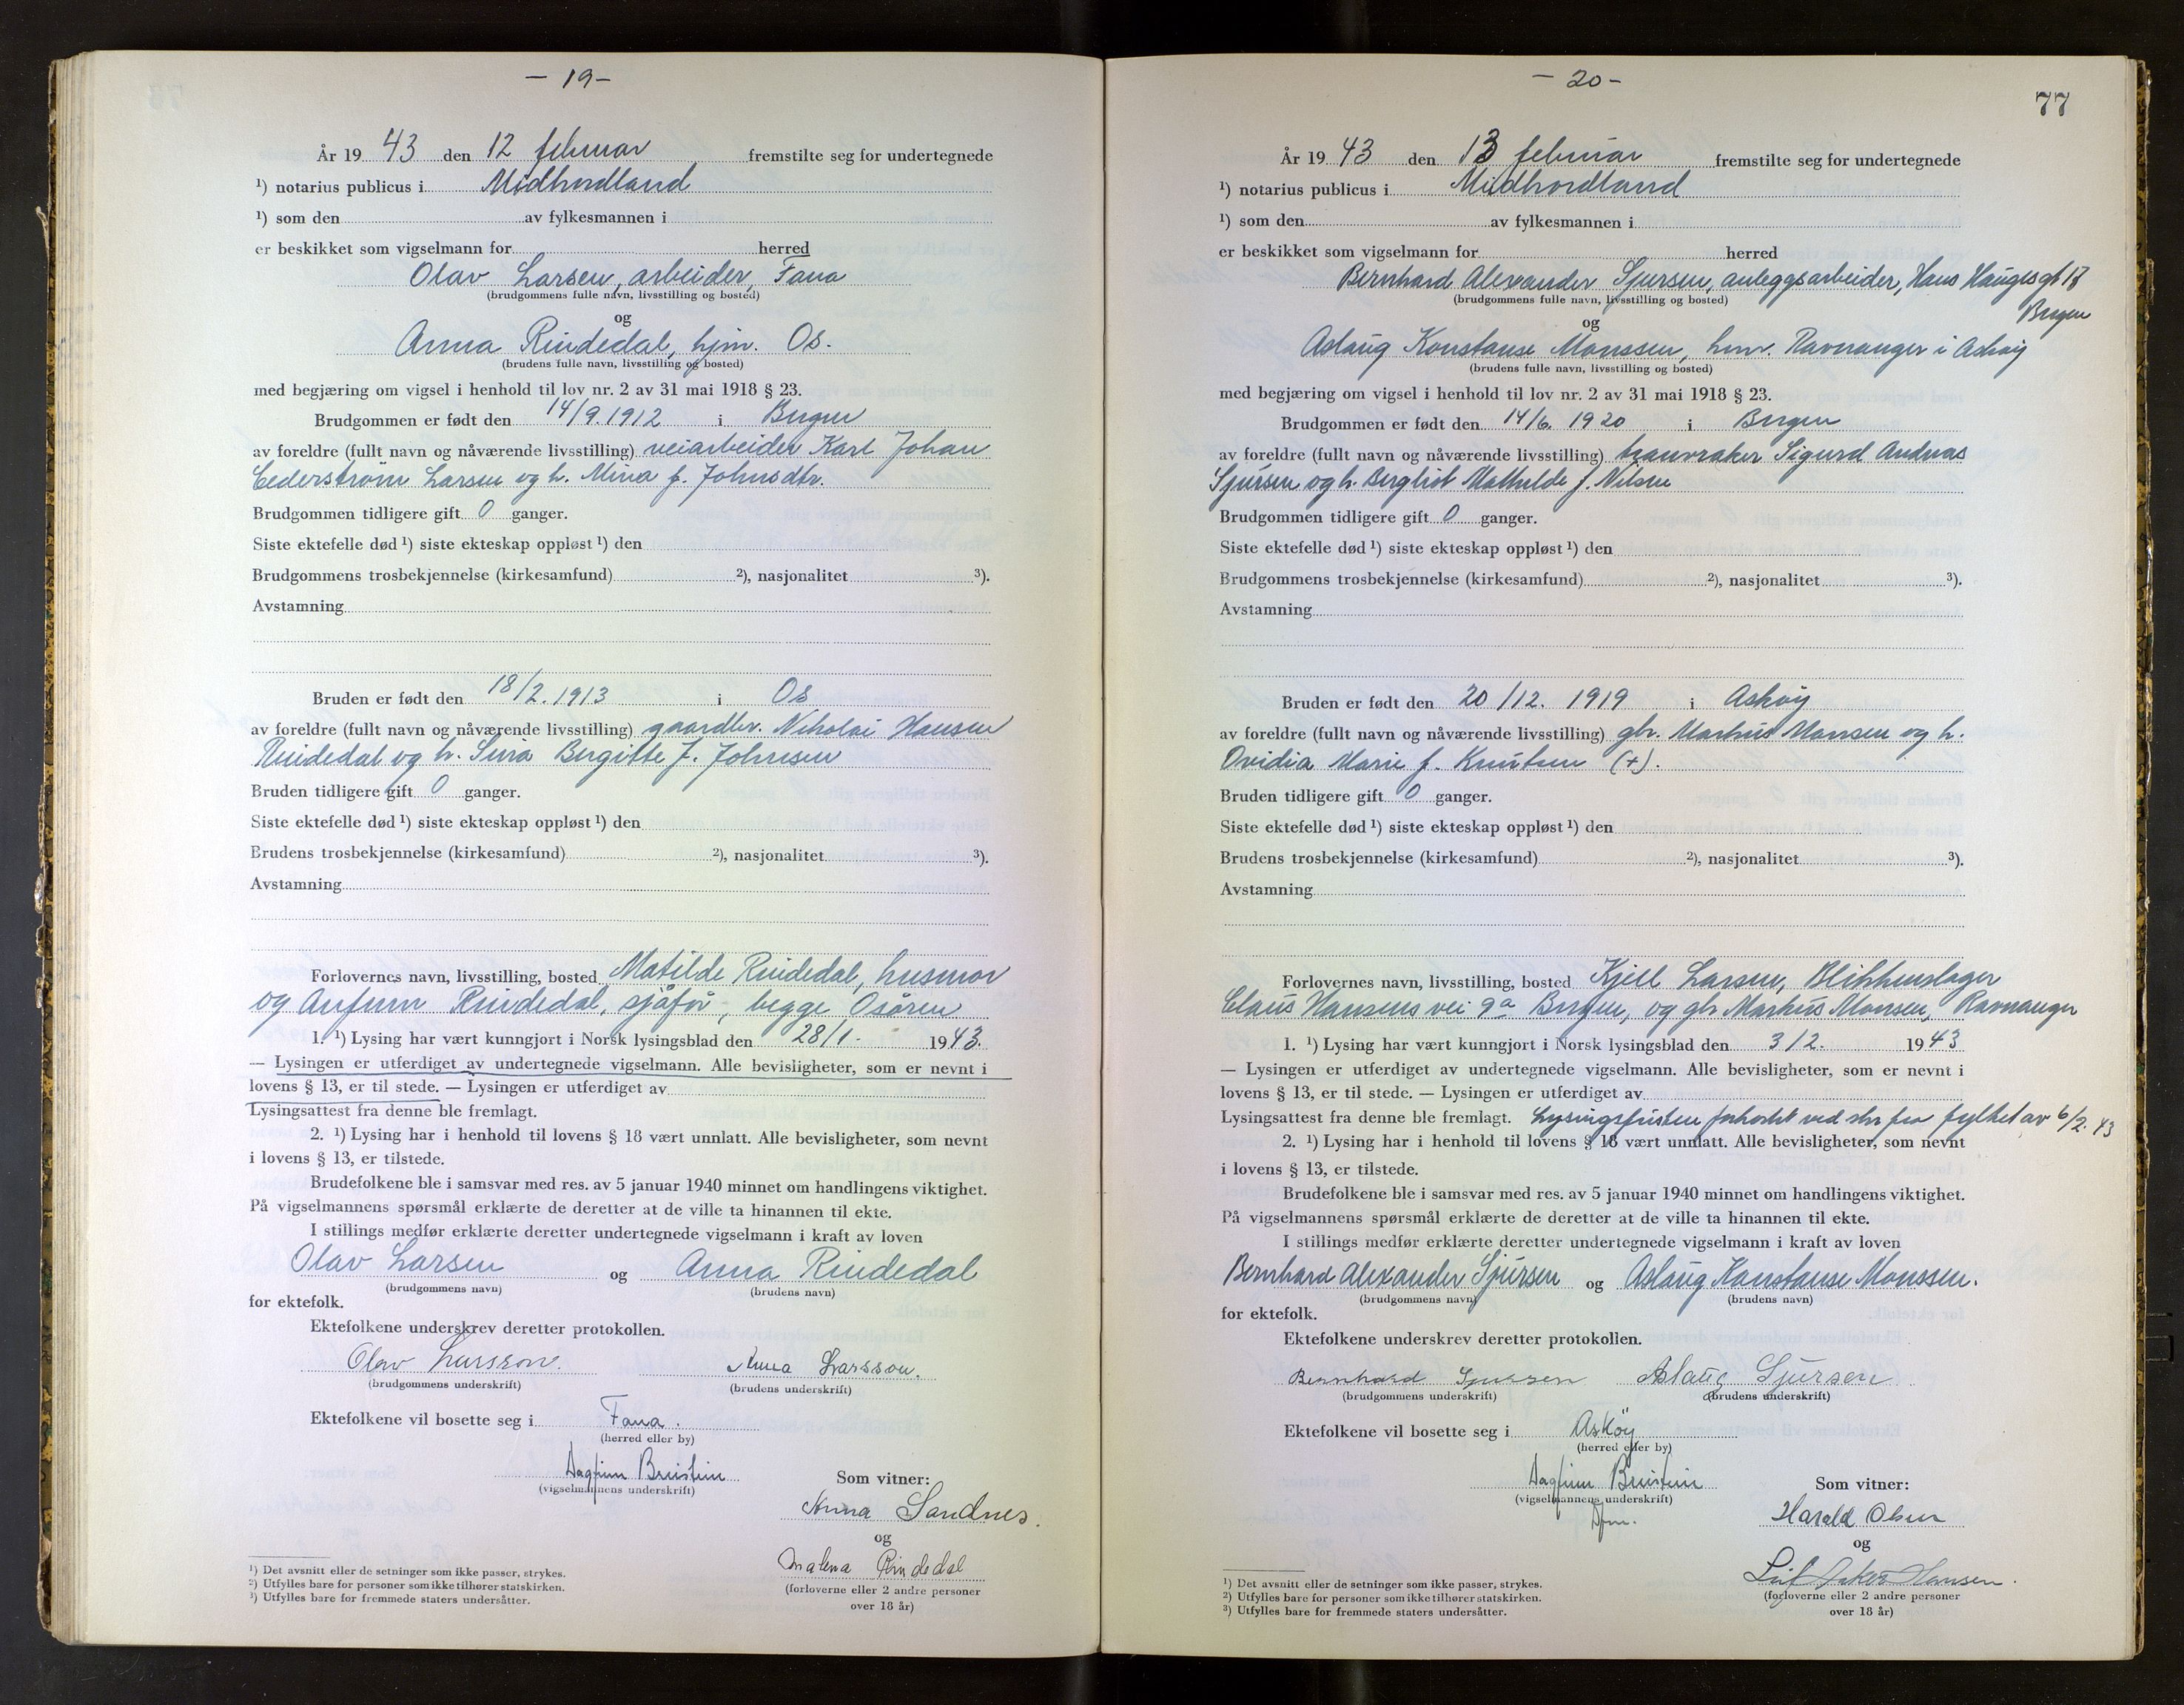 — 19 —
År 1943 den 12 februar fremstilte seg for undertegnede
¹) notarius publicus i Midhordland
¹) som den av fylkesmannen i
er beskikket som vigselmann for herred
Olav Larsen, arbeider, Fana
(brudgommens fulle navn, livsstilling og bosted)
og
Anna Rindedal, hjm. Os.
(brudens fulle navn, livsstilling og bosted)
med begjæring om vigsel i henhold til lov nr. 2 av 31 mai 1918 § 23.
Brudgommen er født den 14/9.1912 i Bergen
av foreldre (fullt navn og nåværende livsstilling) veiarbeider Karl Johan
Cederstrøm Larsen og h. Mina f. Johnsdtr.
Brudgommen tidligere gift 0 ganger.
Siste ektefelle død ¹) siste ekteskap oppløst ¹) den
Brudgommens trosbekjennelse (kirkesamfund) ²), nasjonalitet ³).
Avstamning
Bruden er født den 18/2.1913 i Os
av foreldre (fullt navn og nåværende livsstilling) gaardbr. Nikolai Hansen
Rindedal og h. Birgitte f. Johnsen
Bruden tidligere gift 0 ganger.
Siste ektefelle død ¹) siste ekteskap oppløst ¹) den
Brudens trosbekjennelse (kirkesamfund) ²), nasjonalitet ³).
Avstamning
Forlovernes navn, livsstilling, bosted Matilde Rindedal, husmor
og Rindedal, sjåfør, begge Osøren
1. ¹) Lysing har vært kunngjort i Norsk lysingsblad den 28/1. 1943.
— Lysingen er utferdiget av undertegnede vigselmann. Alle bevisligheter, som er nevnt i
lovens § 13, er til stede. — Lysingen er utferdiget av
Lysingsattest fra denne ble fremlagt.
2. ¹) Lysing har i henhold til lovens § 18 vært unnlatt. Alle bevisligheter, som nevnt
i lovens § 13, er tilstede.
Brudefolkene ble i samsvar med res. av 5 januar 1940 minnet om handlingens viktighet.
På vigselmannens spørsmål erklærte de deretter at de ville ta hinannen til ekte.
I stillings medfør erklærte deretter undertegnede vigselmann i kraft av loven
Olav Larsen og Anna Rindedal
(brudgommens navn) (brudens navn)
for ektefolk.
Ektefolkene underskrev deretter protokollen.
Olav Larsson. Anna Larsson.
(brudgommens underskrift) (brudens underskrift)
Ektefolkene vil bosette seg i Fana.
(herred eller by)
Dagfinn Breistein
(vigselmannens underskrift)
Som vitner:
Anna Sandnes.
og
Malena Rindedal
(forloverne eller 2 andre personer
over 18 år)
¹) Det avsnitt eller de setninger som ikke passer, strykes.
²) Utfylles bare for personer som ikke tilhører statskirken.
³) Utfylles bare for fremmede staters undersåtter.
— 20 —
77
År 1943 den 13 februar fremstilte seg for undertegnede
¹) notarius publicus i Midhordland
¹) som den av fylkesmannen i
er beskikket som vigselmann for herred
Bernhard Alexander Sjursen, anleggsarbeider, Hans Haugesgt 18
Bergen
(brudgommens fulle navn, livsstilling og bosted)
og
Aslaug Konstanse Monssen, hmv. Ravnanger i Askøy
(brudens fulle navn, livsstilling og bosted)
med begjæring om vigsel i henhold til lov nr. 2 av 31 mai 1918 § 23.
Brudgommen er født den 14/6. 1920 i Bergen
av foreldre (fullt navn og nåværende livsstilling) tranvraker Sigurd Andreas
Sjursen og h. Bergliot Mathilde f. Nilsen
Brudgommen tidligere gift 0 ganger.
Siste ektefelle død ¹) siste ekteskap oppløst ¹) den
Brudgommens trosbekjennelse (kirkesamfund) ²), nasjonalitet ³).
Avstamning
Bruden er født den 20/12. 1919 i Askøy
av foreldre (fullt navn og nåværende livsstilling) gbr. Markus Monsen og h.
Ovidia Marie f. Knutsen (+).
Bruden tidligere gift 0 ganger.
Siste ektefelle død ¹) siste ekteskap oppløst ¹) den
Brudens trosbekjennelse (kirkesamfund) ²), nasjonalitet ³).
Avstamning
Forlovernes navn, livsstilling, bosted Kjell Larsen, Blikkenslager
Claus Hansens vei 9a Bergen, og gbr Markus Monsen, Ravnanger
1. ¹) Lysing har vært kunngjort i Norsk lysingsblad den 3/2. 1943
— Lysingen er utferdiget av undertegnede vigselmann. Alle bevisligheter, som er nevnt i
lovens § 13, er til stede. — Lysingen er utferdiget av
Lysingsattest fra denne ble fremlagt. Lysingsfristen forkortet ved skr fra fylket av 6/2.43
2. ¹) Lysing har i henhold til lovens § 18 vært unnlatt. Alle bevisligheter, som nevnt
i lovens § 13, er tilstede.
Brudefolkene ble i samsvar med res. av 5 januar 1940 minnet om handlingens viktighet.
På vigselmannens spørsmål erklærte de deretter at de ville ta hinannen til ekte.
I stillings medfør erklærte deretter undertegnede vigselmann i kraft av loven
Bernhard Alexander Sjursen og Aslaug Konstanse Monssen.
(brudgommens navn) (brudens navn)
for ektefolk.
Ektefolkene underskrev deretter protokollen.
Bernhard Sjursen Aslaug Sjursen
(brudgommens underskrift) (brudens underskrift)
Ektefolkene vil bosette seg i Askøy
(herred eller by)
Dagfinn Breistein
(vigselmannens underskrift)
Dfm.
Som vitner:
Harald Olsen
og
Leif Asker Hansen.
(forloverne eller 2 andre personer
over 18 år)
¹) Det avsnitt eller de setninger som ikke passer, strykes.
²) Utfylles bare for personer som ikke tilhører statskirken.
³) Utfylles bare for fremmede staters undersåtter.